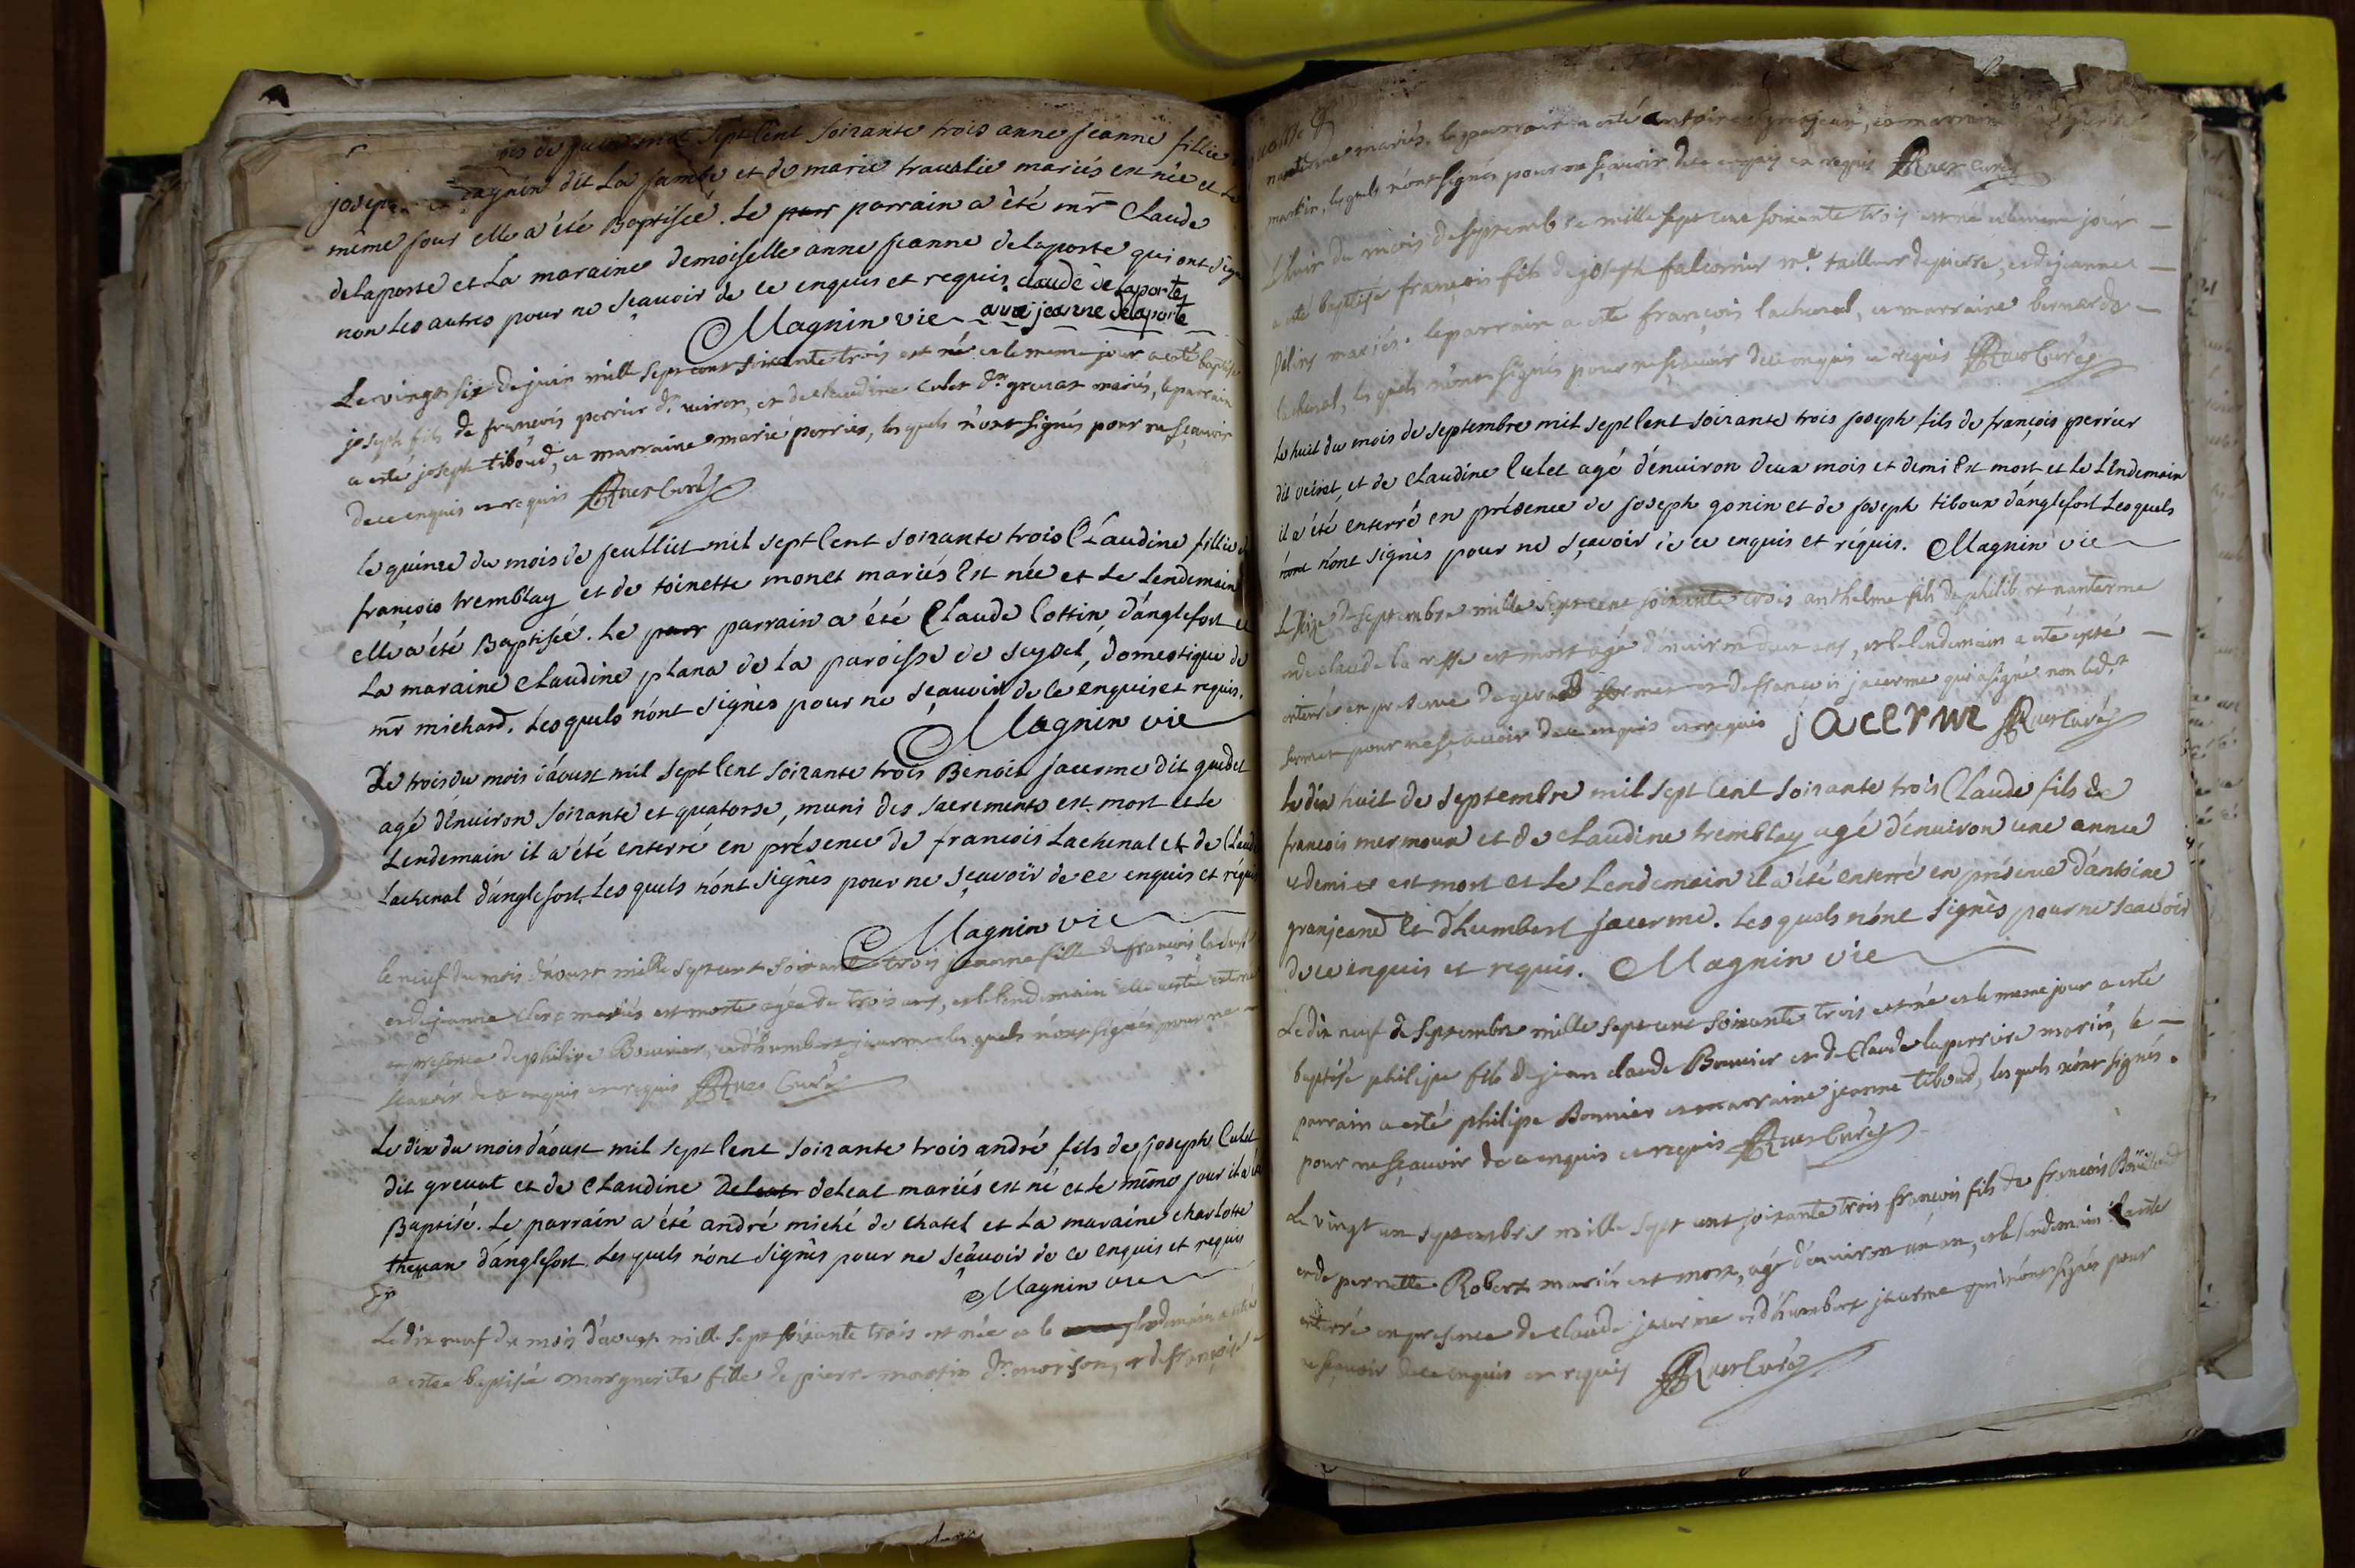 de juin mil sept Cent soixante trois anne jeanne fillie
joseph magnin dit La jambe et de marie traualie mariés est née et Le
même jour elle a été Baptisée. Le parrain a été mr Claude
delaporte et La maraine demoiselle anne jeanne delaporte qui ont signé
non Les autres pour ne sçauoir de ce enquis et requis. claude delaporte
Magnin vic anne jeanne delaporte
Le vingt six de juin mille sept cent soixante trois est né et le meme jour a eté baptisé
joseph fils de françois perrier dt veiron, et de claudine culet dt greuat mariés, le parrain
a esté joseph tiboud, et marraine marie perrier, les quels n'ont signés pour ne sçauoir
de ce enquis et requis Ruer Curé
le quinze du mois de jeulliet mil sept Cent soixante trois Claudine fillie de
françois tremblay et de toinette monet mariés Est née et Le Lendemain
elle a été Baptisée. Le parrain a été Claude Cottin d'anglefort et
La maraine Claudine plana de la paroisse de seyssel, domestique de
mr michard. Les quels n'ont signès pour ne sçauoir de ce enquis et requis.
Magnin vic
Le trois du mois d'aoust mil sept Cent soixante trois Benoit jacerme dit guedet
agé d'énuiron soixante et quatorse, muni des sacrements est mort et le
Lendemain il a été enterré en présence de francois Lachenal et de Claude
Lachenal d'anglefort. Les quels n'ont signês pour ne sçauoir de ce enquis et réquis
Magnin vic
le neuf du mois d'aoust mille sept cent soixante trois jeanne fille de françois
et de jeanne clerc mariés est morte agée de trois ans, et le lendemain elle a estée enterrée
en presence de philipe Bouuier, et d'humbert jacerme les quels n'ont signés pour ne
scauoir de ce enquis et requis Ruer Curé
Le dix du mois d'aoust mil sept Cent soixante trois andré fils de joseph Culet
dit greuat et de Claudine deleat mariés est né et le même jour il a été
Baptisé. Le parrain a été andré miché de chatel et La maraine charlotte
d'anglefort. Les quels n'ont signès pour ne sçauoir de ce enquis et requis
Magnin vic
Le dix neuf du mois d'aoust mille sept soixante trois est née et le lendemain
a estée baptisée marguerite fille de pierre martin dt morison, et de françoise
nanterme mariés, le parrain a esté antoine granjean, et marraine
martin, les quels n'ont signés pour ne sçauoir de ce enquis et requis Ruer Curé
Le huit du mois de septembre mille sept cent soixante trois est né et le meme jour
a été baptisé françois fils de joseph falconnier me tailleur de pierre, et de jeanne
mariés. le parrain a esté françois lachenal, et marraine bernarde
lachenal, les quels n'ont signés pour ne sçauoir de ce enquis et requis Ruer Curé
Le huit du mois de septembre mil sept Cent soixante trois joseph fils de françois perrier
dit et de Claudine Culet agé d'énuiron deux mois et demi Est mort et Le Lendemain
il a été enterré en présence de joseph gonin et de joseph tiboux d'anglefort Les quels
n'ont signès pour ne sçauoir de ce enquis et réquis. Magnin vic
Le seize de septembre mille sept cent soixante trois anthelme fils de philibert nanterme
et de claude la resse est mort agé d'enuiron deux ans, et le lendemain a eté
enterré en presence de et de francois jacerme qui a signé non led.t
pour ne sçauoir de ce enquis et requis jacerme Ruer Curé
Le dix huit de septembre mil sept Cent soixante trois Claude fils de
francois mermoux et de claudine tremblay agé d'énuiron une année
et demi est mort et Le Lendemain il a été enterré en présence d'antoine
granjeand et d'humbert jacerme. Les quels n'ont signès pour ne scauoir
de ce enquis et requis. Magnin vic
Le dix neuf de septembre mille sept cent soixante trois est né et le meme jour a esté
baptisé philipe fils de jean claude Bonnier et de Claude laperrire mariés, le
parrain a esté philipe Bonnier et marraine jeanne tiboud, les quels n'ont signés.
pour ne sçauoir de ce enquis et requis Ruer Curé
Le vingt un septembre mille sept cent soixante trois francois fils de francois
et de pernette Robert mariés est mort, agé d'enuiron un an, et le lendemain il a eté
enterré en presence de claude jacerme et d'humbert jacerme qui n'ont signés pour
ne sçauoir de ce enquis et requis Ruer Curé